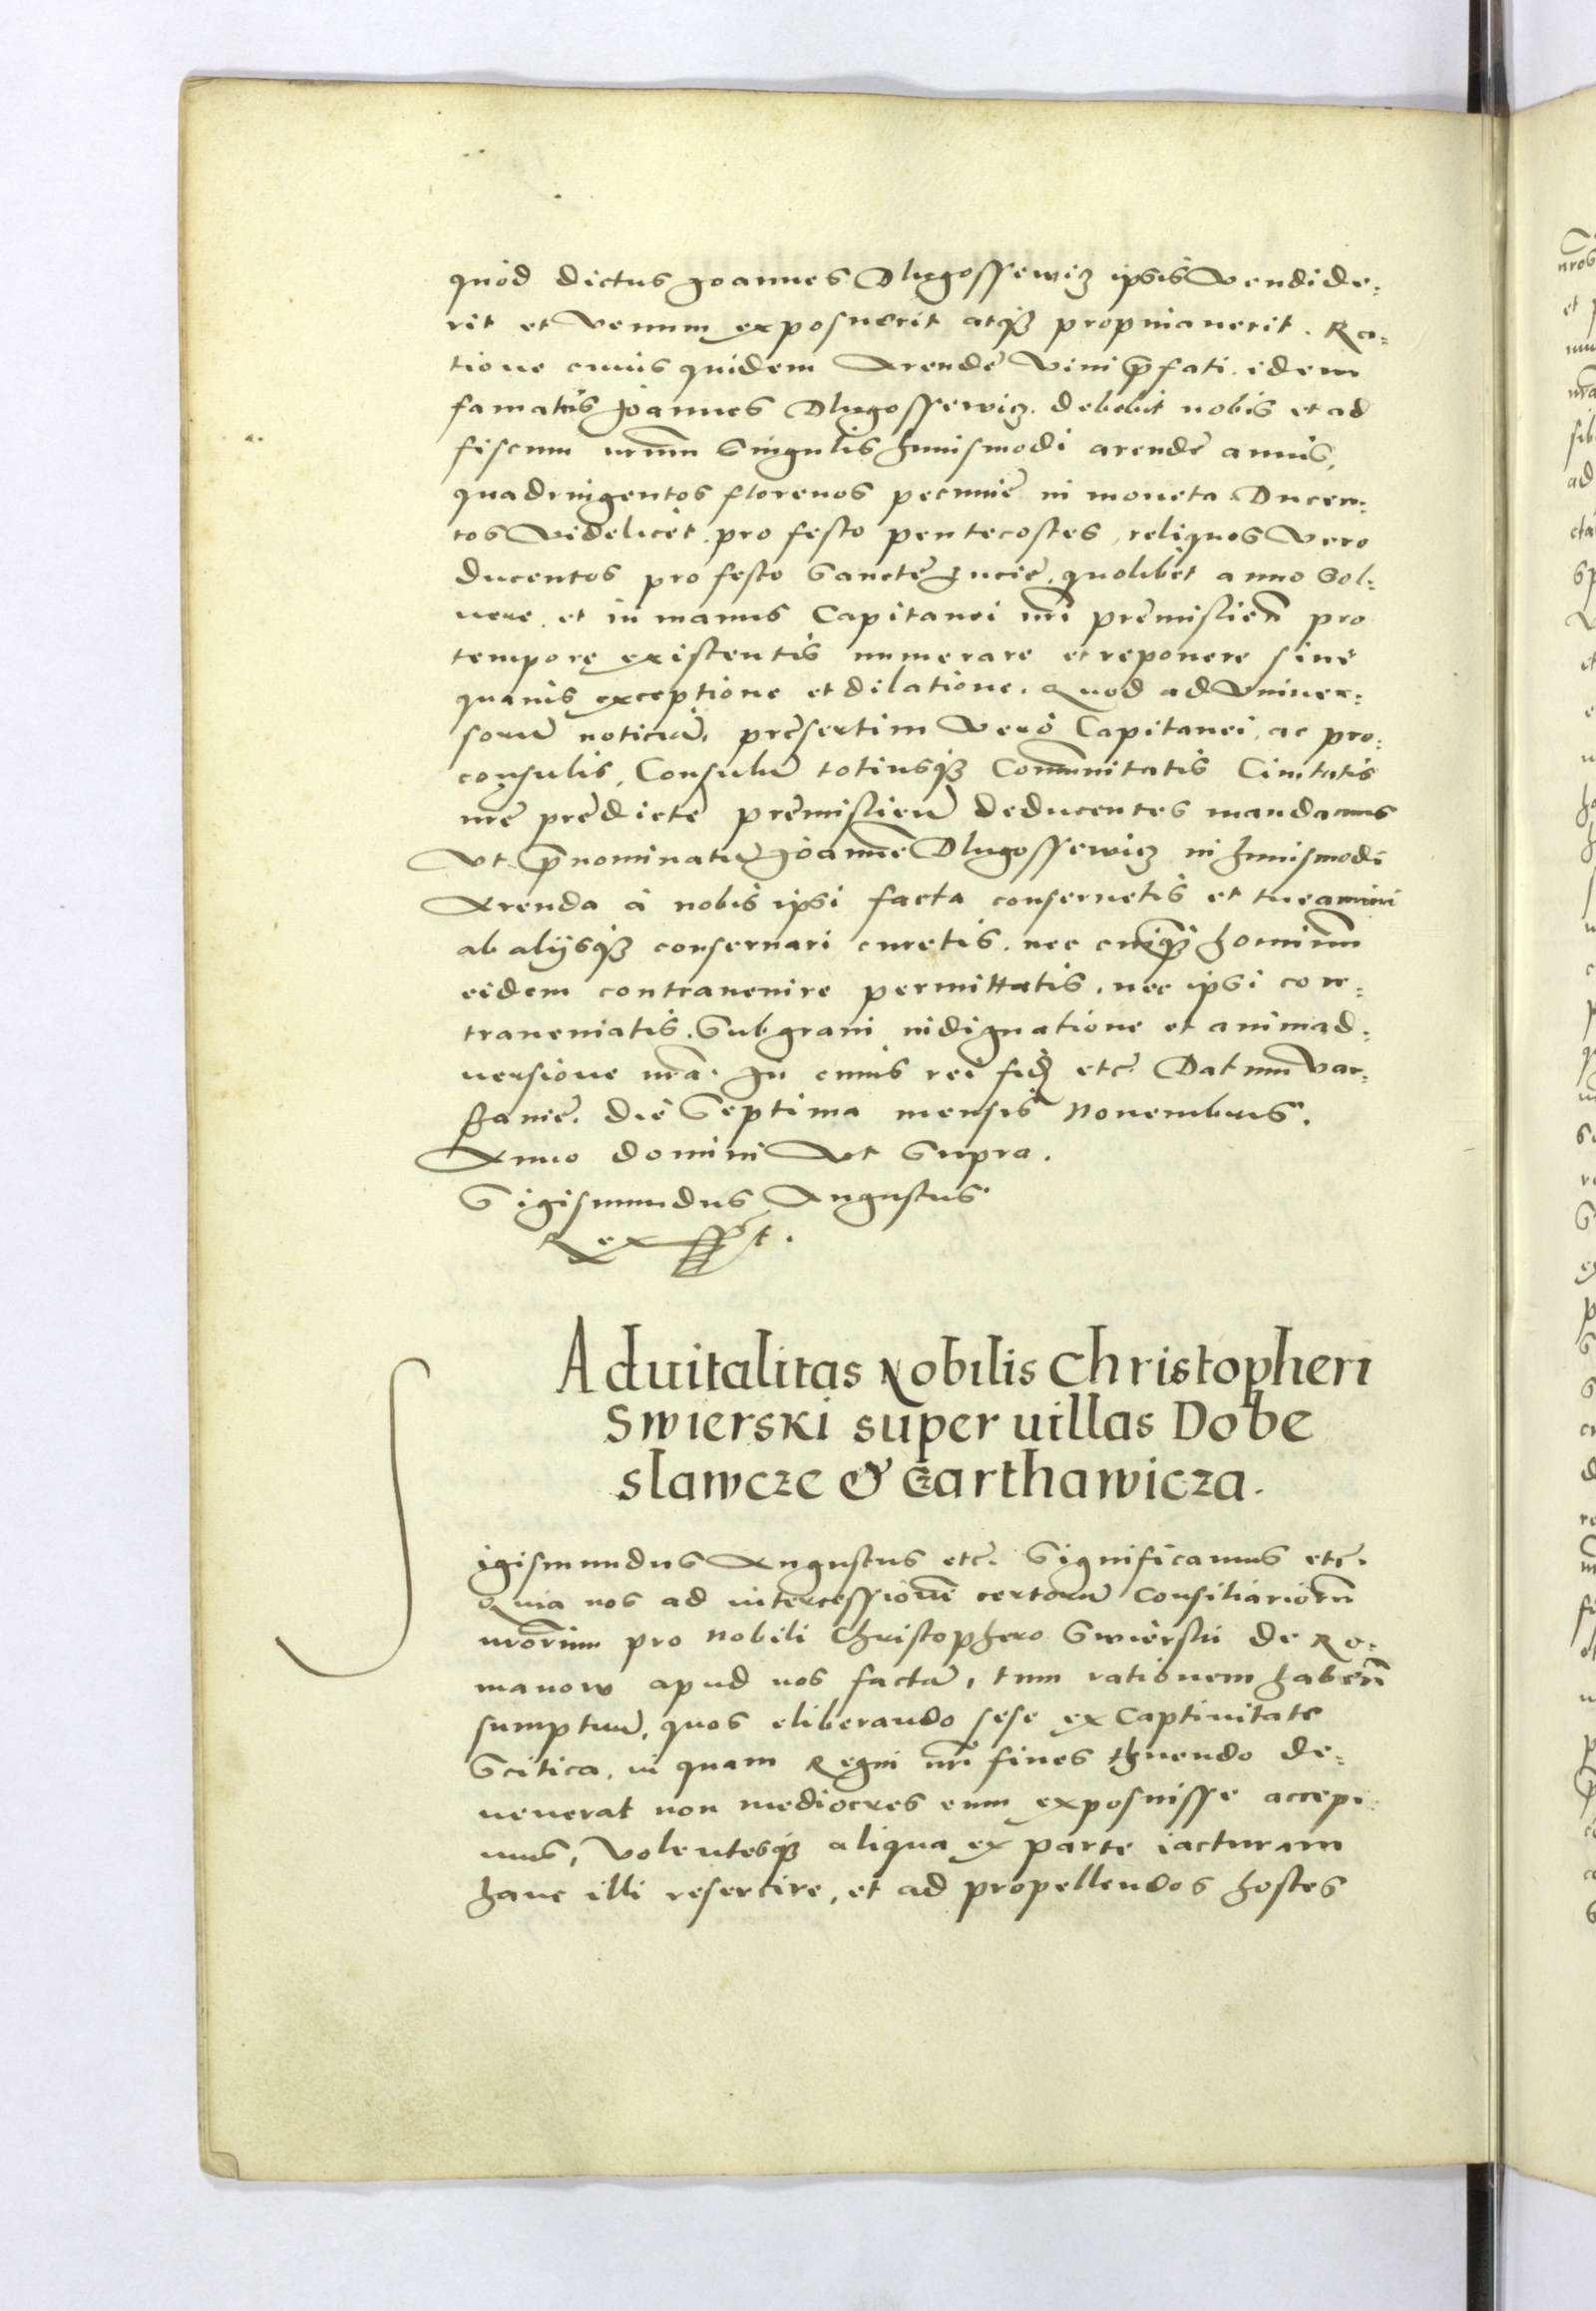 quod dictus Joannes Dlugossewicz ipsis vendide:
rit et venum exposuerit atq3 propinaverit. Ra:
tione cuius quidem Arendę vini p̄fati. idem
famatus Joannes Dlugossewicz. debebit nobis et ad
fiscum nr̄um singulis huiusmodi arendę annis,
quadringentos florenos pecunię in moneta Ducen:
tos videlicet pro festo pentecostes, reliquos vero
ducentos pro festo Sanctę Lucię, quolibet anno sol:
uere, et in manus Capitanei nr̄i premislien̄ pro
tempore existentis numerare et reponere sine
quauis exceptione et dilatione. Quod ad vniuer:
sorū noticiā, presertim vero Capitanei, ac pro:
consulis, Consulū totiusq3 Com̄unitatis Ciuitatis
nr̄e predictę premislien̄ deducentes mandamus
vt p̄nominatū Joannē Dlugossewicz in huiusmodi
Arenda à nobis ipsi facta conseruetis et tueamini
ab alijsq3 conseruari curetis. nec cuiq3 hominū
eidem contrauenire permittatis, nec ipsi con:
traueniatis. Sub graui indignatione et animad:
uersione nr̄a. In cuius rei fid̄ etc. Datum var:
schauię. die Septima mensis Nouembris.
Anno domini vt supra.
Sigismundus Augustus
Rex sst.
Aduitalitas Nobilis Christopheri
Swierski super uillas Dobe
slawcze & Czarthawicza.
Sigismundus Augustus etc. Significamus etc.
Quia nos ad intercessionē certorū Consiliariorū
nr̄orum pro Nobili Christophero Swierski de Ro:
manow apud nos factā, tum rationem haben̄
sumptuū, quos eliberando sese ex Captiuitate
Scitica, in quam Regni nr̄i fines thuendo de:
uenerat non mediocres eum exposuisse accepi:
mus, volentesq3 aliqua ex parte iacturam
hanc illi resercire, et ad propellendos hostes